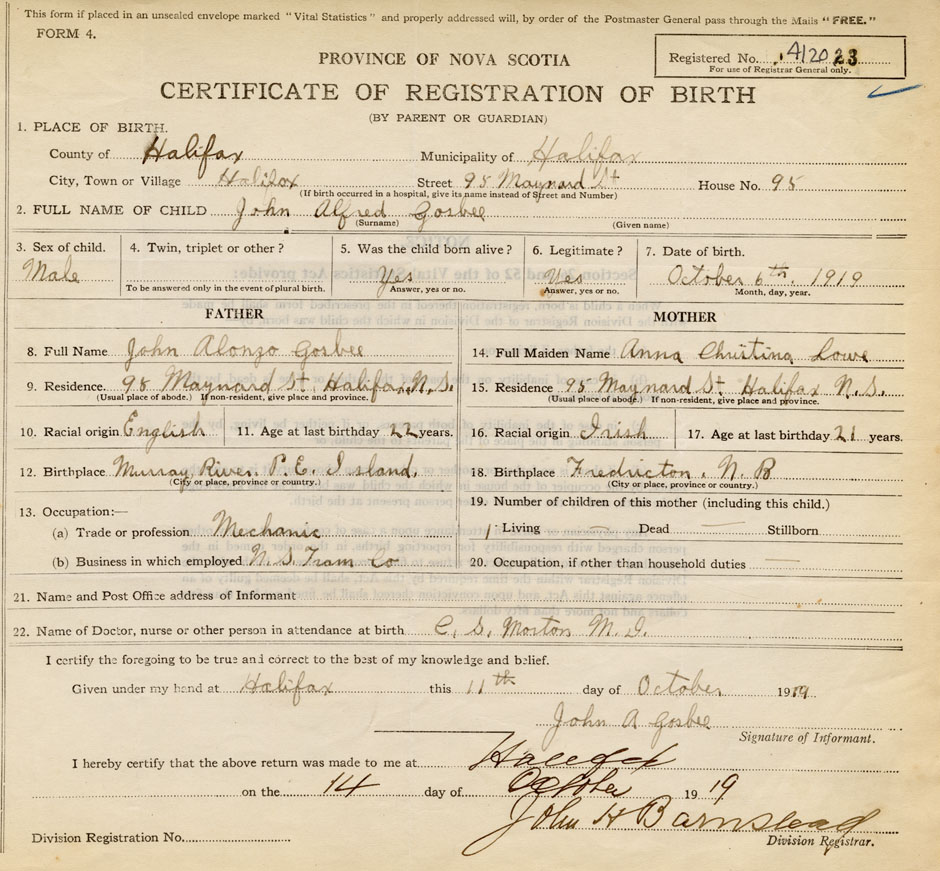 This form if placed in an unsealed envelope marked "Vital Statistics" and properly addressed will, by order of the Postmaster General pass through the Mails "FREE."
FORM 4.
Registered No. 412023
For use of Registrar General only.
PROVINCE OF NOVA SCOTIA
CERTIFICATE OF REGISTRATION OF BIRTH
(BY PARENT OR GUARDIAN)
1. PLACE OF BIRTH.
County of Halifax Municipality of Halifax
City, Town or Village Halifax Street 95 Maynard St House No. 95
(If birth occurred in a hospital, give its name instead of Street and Number)
2. FULL NAME OF CHILD John Alfred Gosbee
(Surname) (Given name)
3. Sex of child. 4. Twin, triplet or other? 5. Was the child born alive? 6. Legitimate? 7. Date of birth.
Male Yes Yes October 6th 1919
To be answered only in the event of plural birth. Answer, yes or no. Answer, yes or no. Month, day, year.
FATHER MOTHER
8. Full Name John Alonzo Gosbee 14. Full Maiden Name Anna Christina Lowe
9. Residence. 95 Maynard St. Halifax, N.S. 15. Residence 95 Maynard St. Halifax N.S.
(Usual place of abode.) If non-resident, give place and province. (Usual place of abode.) If non-resident, give place and province.
10. Racial origin English 11. Age at last birthday 22 years. 16. Racial origin Irish 17. Age at last birthday 21 years.
12. Birthplace Murray River P.E. Island. 18. Birthplace Fredricton, N.B
(City or place, province or country.) (City or place, province or country.)
19. Number of children of this mother (including this child.)
13. Occupation:—
(a) Trade or profession Mechanic 1 Living — Dead — Stillborn
(b) Business in which employed N.S. Tram Co 20. Occupation, if other than household duties —
21. Name and Post Office address of Informant
22. Name of Doctor, nurse or other person in attendance at birth C. S. Morton M.D.
I certify the foregoing to be true and correct to the best of my knowledge and belief.
Given under my hand at Halifax this 11th day of October 1919
John A Gosbee
Signature of Informant.
I hereby certify that the above return was made to me at Halifax
on the 14 day of October 1919
John H Barnstead
Division Registration No. Division Registrar.